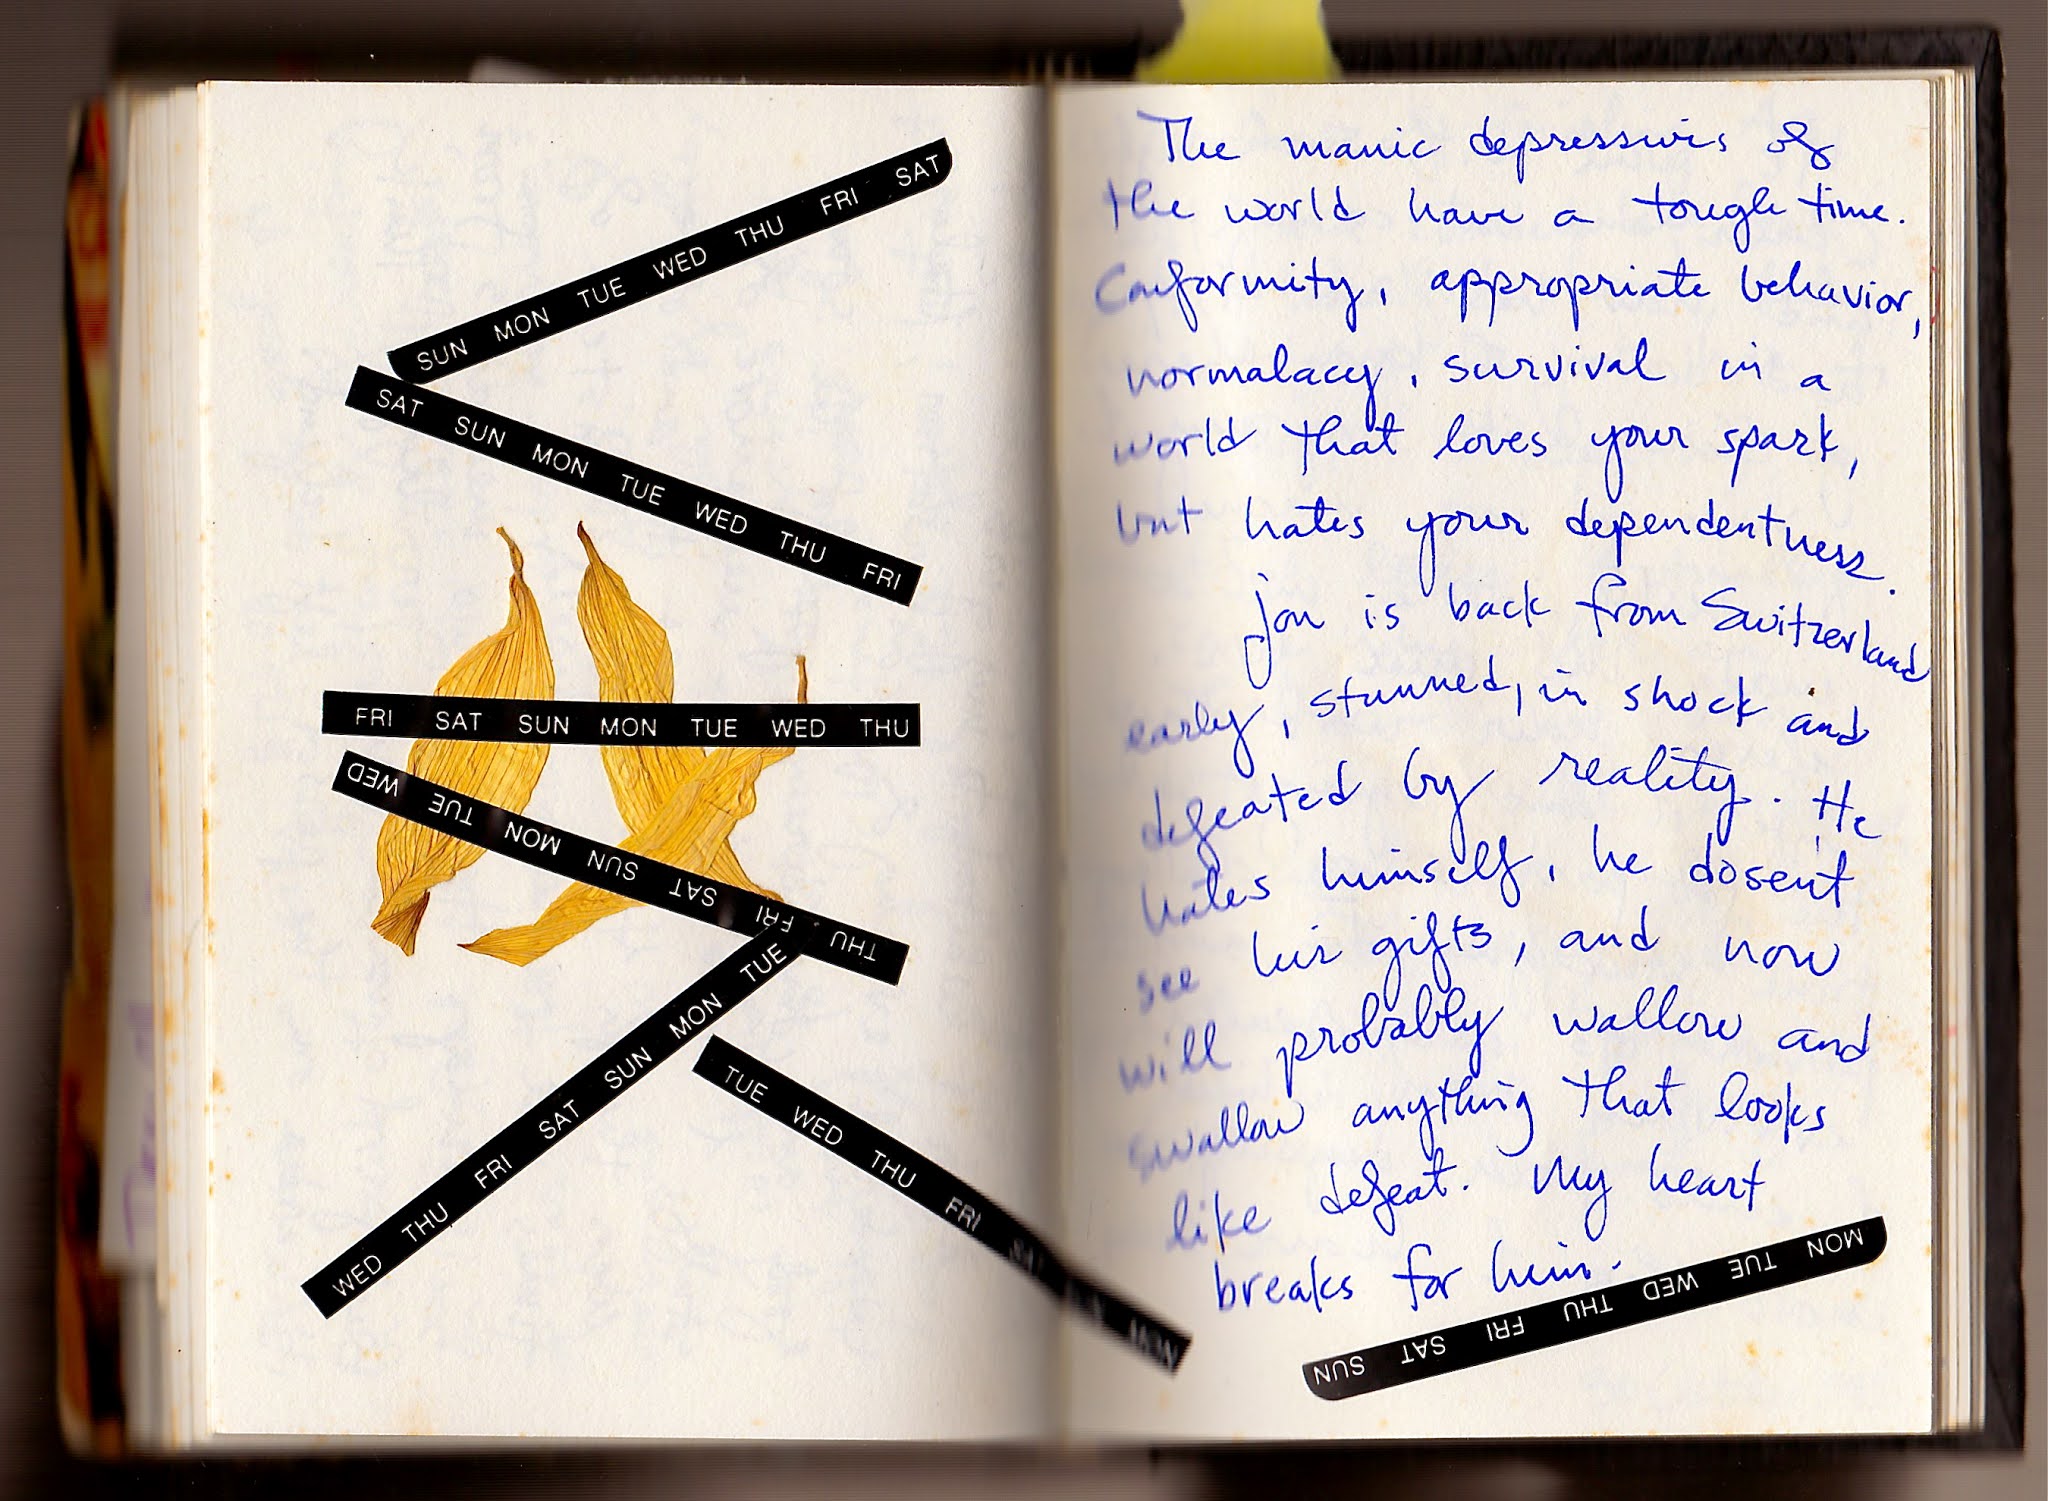 SUN MON TUE WED THU FRI SAT
SAT SUN MON TUE WED THU FRI
FRI SAT SUN MON TUE WED THU
THU FRI SAT SUN MON TUE WED
WED THU FRI SAT SUN MON TUE
TUE WED THU FRI SAT SUN MON
The manic depressives of
the world have a tough time.
Conformity, appropriate behavior,
normalacy, survival in a
world that loves your spark,
but hates your dependentness.
Jon is back from Switzerland
early, stunned, in shock and
defeated by reality. He
hates himself, he dosent
see his gifts, and now
will probably wallow and
swallow anything that looks
like defeat. My heart
breaks for him.
MON TUE WED THU FRI SAT SUN